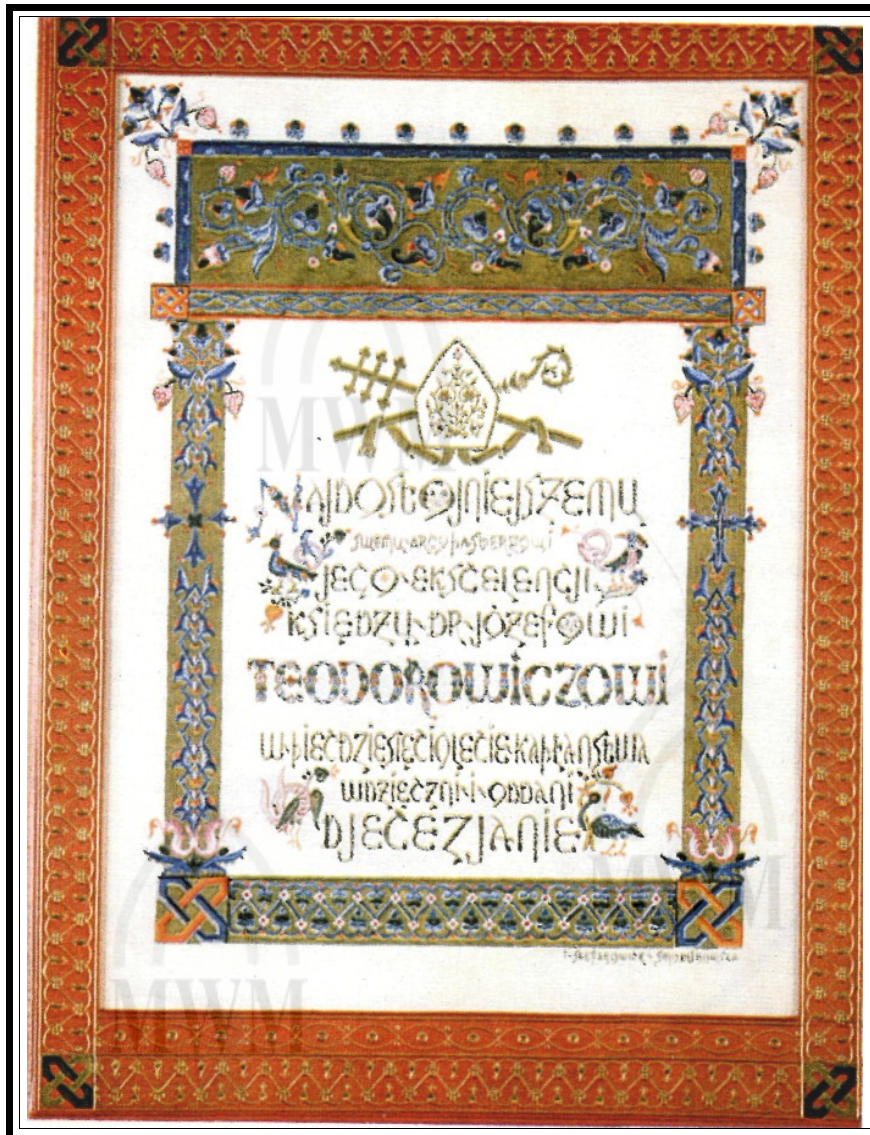 MWM
NAJDOSTOJNIEJSZEMU
SWEMU ARCYPASTERZOWI
JEGO·EKSCELENCJI
KSIĘDZU·DR·JÓZEFOWI
TEODOROWICZOWI
W·PIĘĆDZIESIĘCIOLECIE·KAPŁAŃSTWA
WDZIĘCZNI·I·ODDANI
DJECEZJANIE
MWM
MWM